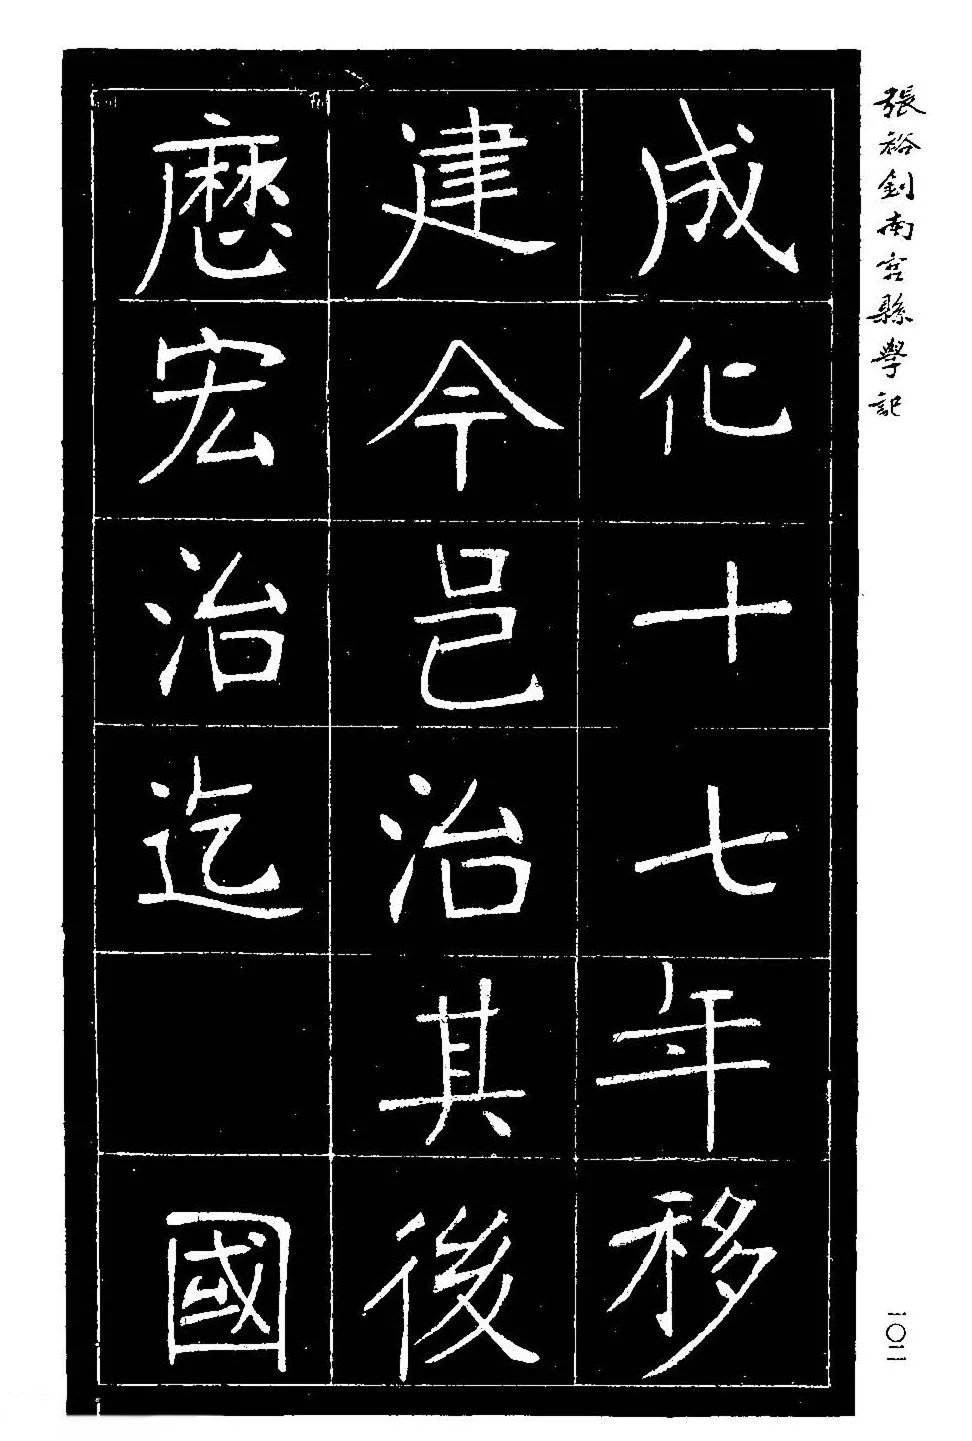 張裕釗南宮縣學記
成化十七年移
建今邑治其後
歷宏治迄 國
一〇二